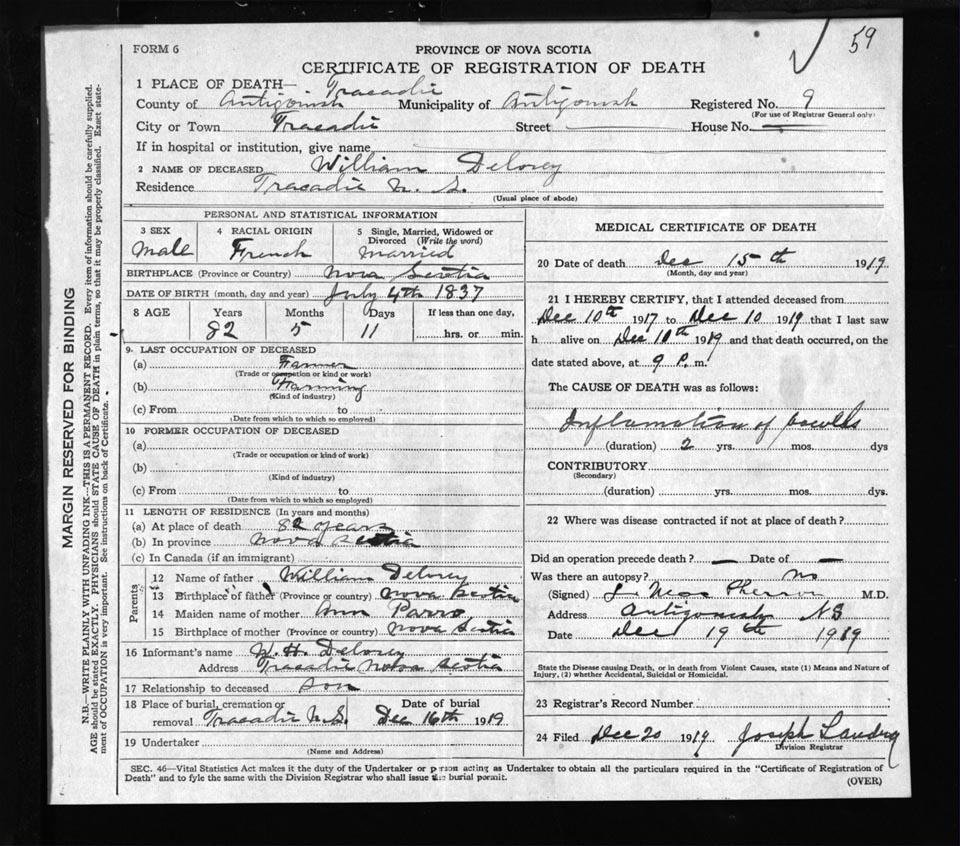 59
FORM 6
PROVINCE OF NOVA SCOTIA
CERTIFICATE OF REGISTRATION OF DEATH
1 PLACE OF DEATH— Tracadie
County of Antigonish Municipality of Antigonish Registered No. 9
(For use of Registrar General only)
City or Town Tracadie Street House No.
If in hospital or institution, give name
2 NAME OF DECEASED William Delorey
Residence Tracadie N. S.
(Usual place of abode)
PERSONAL AND STATISTICAL INFORMATION
3 SEX Male
4 RACIAL ORIGIN French
5 Single, Married, Widowed or Divorced (Write the word) Married
BIRTHPLACE (Province or Country) Nova Scotia
DATE OF BIRTH (month, day and year) July 4th 1837
8 AGE Years Months Days If less than one day,
82 5 11 hrs. or min.
9 LAST OCCUPATION OF DECEASED
(a) Farmer
(Trade or occupation or kind or work)
(b) Farming
(Kind of industry)
(c) From to
(Date from which to which so employed)
10 FORMER OCCUPATION OF DECEASED
(a)
(Trade or occupation or kind of work)
(b)
(Kind of industry)
(c) From to
(Date from which to which so employed)
11 LENGTH OF RESIDENCE (In years and months)
(a) At place of death 82 years
(b) In province Nova Scotia
(c) In Canada (if an immigrant)
Parents
12 Name of father William Delorey
13 Birthplace of father (Province or country) Nova Scotia
14 Maiden name of mother Ann Parro
15 Birthplace of mother (Province or country) Nova Scotia
16 Informant's name W. H. Delorey
Address Tracadie Nova Scotia
17 Relationship to deceased son
18 Place of burial, cremation or Date of burial
removal Tracadie N.S. Dec 16th 1919
19 Undertaker
(Name and Address)
MEDICAL CERTIFICATE OF DEATH
20 Date of death Dec 15th 1919
(Month, day and year)
21 I HEREBY CERTIFY, that I attended deceased from
Dec 10th 1917 to Dec 10 1919 that I last saw
h alive on Dec 10th 1919 and that death occurred, on the
date stated above, at 9 P. m.
The CAUSE OF DEATH was as follows:
Inflamation of bowells
(duration) 2 yrs. mos. dys
CONTRIBUTORY
(Secondary)
(duration) yrs. mos. dys.
22 Where was disease contracted if not at place of death?
Did an operation precede death? — Date of —
Was there an autopsy? no
(Signed) MacPherson M.D.
Address Antigonish NS
Date Dec 19th 1919
State the Disease causing Death, or in death from Violent Causes, state (1) Means and Nature of
Injury, (2) whether Accidental, Suicidal or Homicidal.
23 Registrar's Record Number
24 Filed Dec 20 1919 Joseph Landry
Division Registrar
SEC. 46—Vital Statistics Act makes it the duty of the Undertaker or person acting as Undertaker to obtain all the particulars required in the "Certificate of Registration of
Death" and to fyle the same with the Division Registrar who shall issue the burial permit.
(OVER)
MARGIN RESERVED FOR BINDING
N.B.—WRITE PLAINLY WITH UNFADING INK—THIS IS A PERMANENT RECORD. Every item of information should be carefully supplied.
AGE should be stated EXACTLY. PHYSICIANS should STATE CAUSE OF DEATH in plain terms, so that it may be properly classified. Exact state-
ment of OCCUPATION is very important. See instructions on back of Certificate.